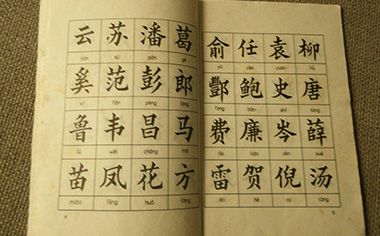 云 苏 潘 葛
yún sū pān gě
奚 范 彭 郎
xī fàn péng láng
鲁 韦 昌 马
lǔ wéi chāng mǎ
苗 凤 花 方
miáo fèng huā fāng
4
俞 任 袁 柳
yú rén yuán liǔ
酆 鲍 史 唐
fēng bào shǐ táng
费 廉 岑 薛
fèi lián cén xuē
雷 贺 倪 汤
léi hè ní tāng
5